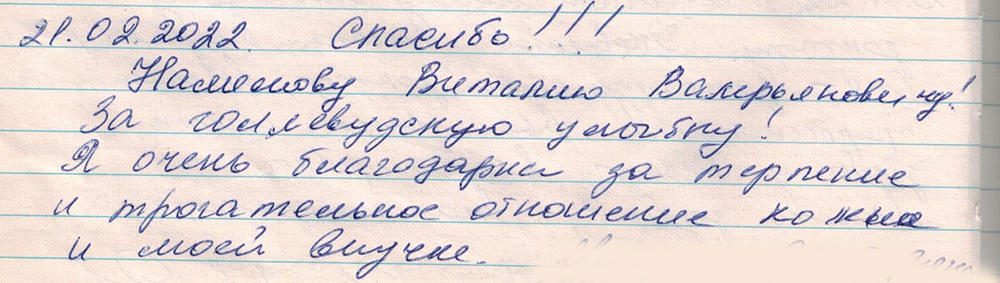 21.02.2022. Спасибо!!!
Наменову Виталию Валерьяновичу!
За голлевудскую улыбку!
Я очень благодарна за терпение
и трогательное отношение ко мне
и моей внучке.